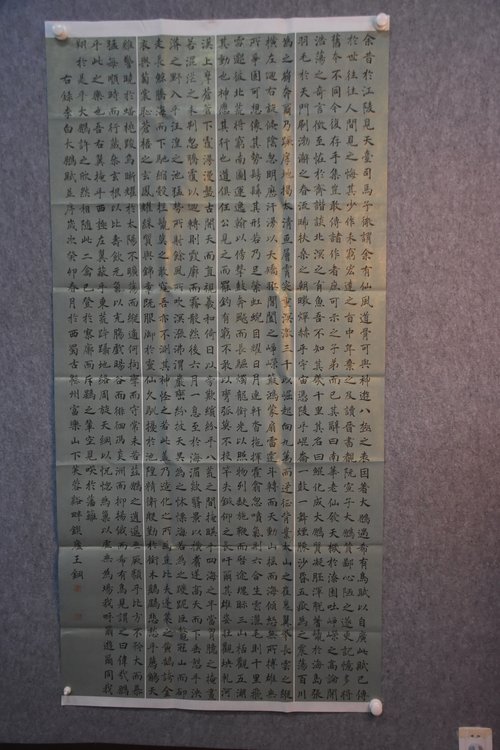 余昔於江陵見天臺司馬子微謂余有仙風道骨可與神遊八極之表因著大鵬遇希有鳥賦以自廣此賦已傳
於世往往人間見之悔其少作未窮宏達之旨中年棄之及讀晉書覩阮宣子大鵬贊鄙心陋之遂更記憶多將
舊本不同今復存手集豈敢傳諸作者庶可示之子弟而已其辭曰南華老仙發天機於漆園吐崢嶸之高論開
浩蕩之奇言徵至怪於齊諧談北溟之有魚吾不知其幾千里其名曰鯤化成大鵬質凝胚渾脫鬐鬣於海島張
羽毛於天門刷渤澥之春流晞扶桑之朝暾燀赫乎宇宙憑陵乎崑崙一鼓一舞煙朦沙昏五嶽為之震蕩百川
為之崩奔爾乃蹶厚地揭太清亘層霄突重溟激三千以崛起向九萬而迅征背嶪太山之崔嵬翼舉長雲之縱
橫左迴右旋倏陰忽明歷汗漫以夭矯羾閶闔之崢嶸簸鴻蒙扇雷霆斗轉而天動山搖而海傾怒無所搏雄無
所爭固可想像其勢髣髴其形若乃足縈虹蜺目耀日月連軒沓拖揮霍翕忽噴氣則六合生雲灑毛則千里飛
雪邈彼北荒將窮南圖運逸翰以傍擊鼓奔飆而長驅燭龍銜光以照物列缺施鞭而啓途塊視三山杯觀五湖
其動也神應其行也道俱任公見之而罷釣有窮不敢以彎弧莫不投竿失鏃仰之長吁爾其雄姿壯觀坱軋河
漢上摩蒼蒼下覆漫漫盤古開天而直視羲和倚日以旁歎繽紛乎八荒之間掩映乎四海之半當胸臆之掩晝
若混茫之未判忽騰覆以迴轉則霞廓而霧散然後六月一息至於海湄欻翳景以橫翥逆高天而下垂憩乎泱
漭之野入乎汪湟之池猛勢所射餘風所吹溟漲沸渭巖巒紛披天吳為之怵慄海若為之躨跜巨鰲冠山而却
走長鯨騰海而下馳縮殼挫鬣莫之敢窺吾亦不測其神怪之若此蓋乃造化之所為豈比夫蓬萊之黃鵠誇金
衣與菊裳恥蒼梧之玄鳳耀綵質與錦章既服御於靈仙久馴擾於池隍精衛勤苦於銜木鶢鶋悲愁乎薦觴天
雞警曉於蟠桃踆烏晰耀於太陽不曠蕩而縱適何拘攣而守常未若茲鵬之逍遙無厥類乎比方不矜大而暴
猛每順時而行藏參玄根以比壽飲元氣以充腸戲暘谷而徘徊馮炎洲而抑揚俄而希有鳥見謂之曰偉哉鵬
乎此之樂也吾右翼掩乎西極左翼蔽乎東荒跨躡地絡周旋天綱以恍惚為巢以虛無為場我呼爾遊爾同我
翔於是乎大鵬許之欣然相隨此二禽已登於寥廓而斥鷃之輩空見笑於藩籬
右錄李白大鵬賦並序歲次癸卯春月於西蜀古綿州富樂山下芙蓉谿畔鎖廬王鋼